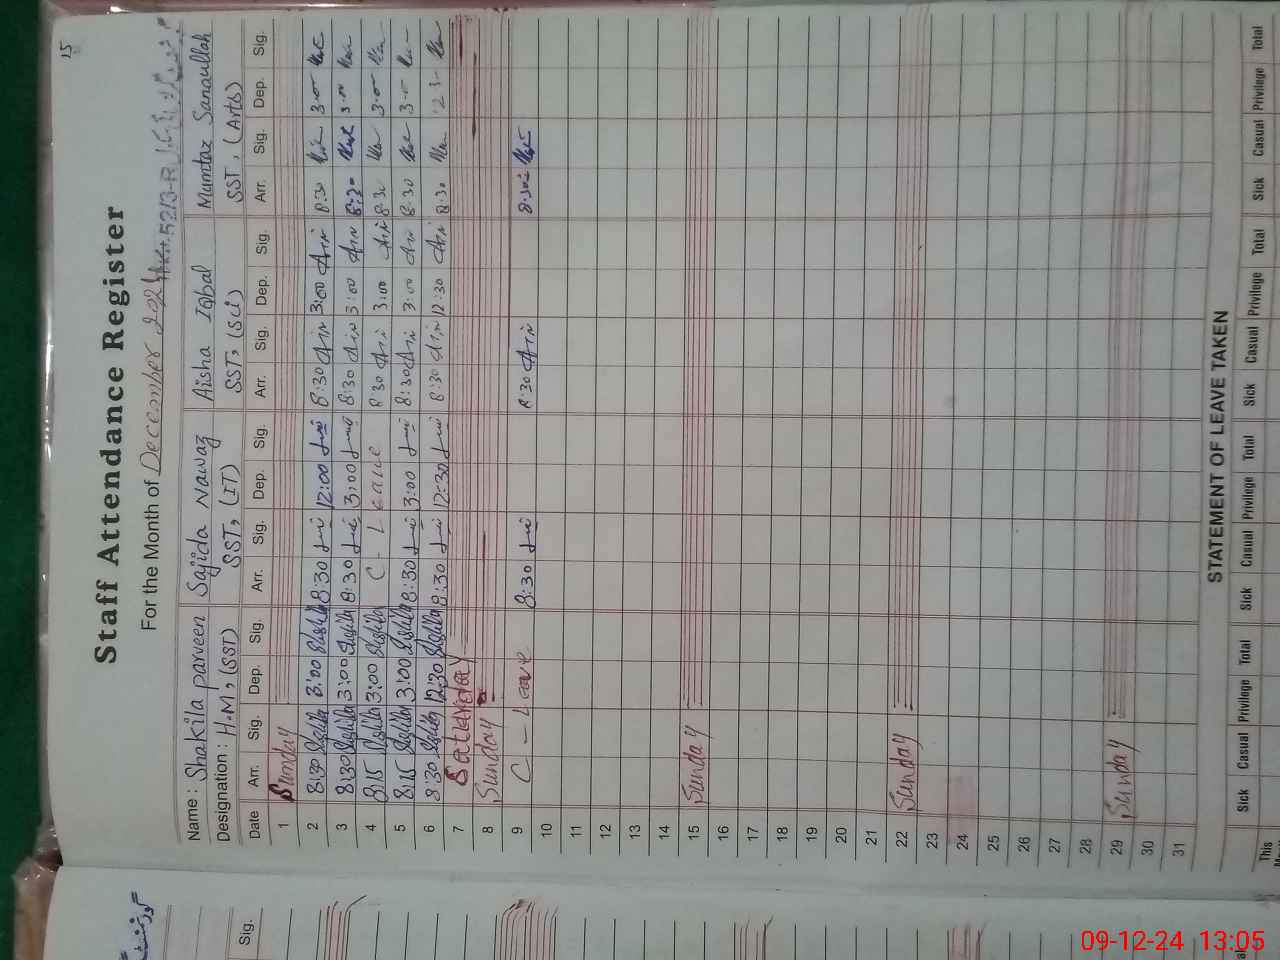 15
Staff Attendance Register
For the Month of December 202
Name : Shakila parveen Sajida Nawaz Aisha Iqbal Mumtaz Sanaullah
Designation : H.M, (SST) SST, (IT) SST, (Sci) SST, (Arts)
Date Arr. Sig. Dep. Sig. Arr. Sig. Dep. Sig. Arr. Sig. Dep. Sig. Arr. Sig. Dep. Sig.
1 Sunday
2 8:30 Shakila 3:00 Shakila 8:30 12:00 8:30 3:00 8:30 3:00
3 8:30 Shakila 3:00 Shakila 8:30 3:00 8:30 3:00 8:30 3:00
4 8:15 Shakila 3:00 Shakila C - Leave 8:30 3:00 8:30 3:00
5 8:15 Shakila 3:00 Shakila 8:30 3:00 8:30 3:00 8:30 3:00
6 8:30 Shakila 12:30 Shakila 8:30 12:30 8:30 12:30 8:30
7 Saturday
8 Sunday
9 C - Leave 8:30 8:30 8:30
10
11
12
13
14
15 Sunday
16
17
18
19
20
21
22 Sunday
23
24
25
26
27
28
29 Sunday
30
31
STATEMENT OF LEAVE TAKEN
Sick Casual Privilege Total Sick Casual Privilege Total Sick Casual Privilege Total Sick Casual Privilege Total
This
Sig.
09-12-24 13:05